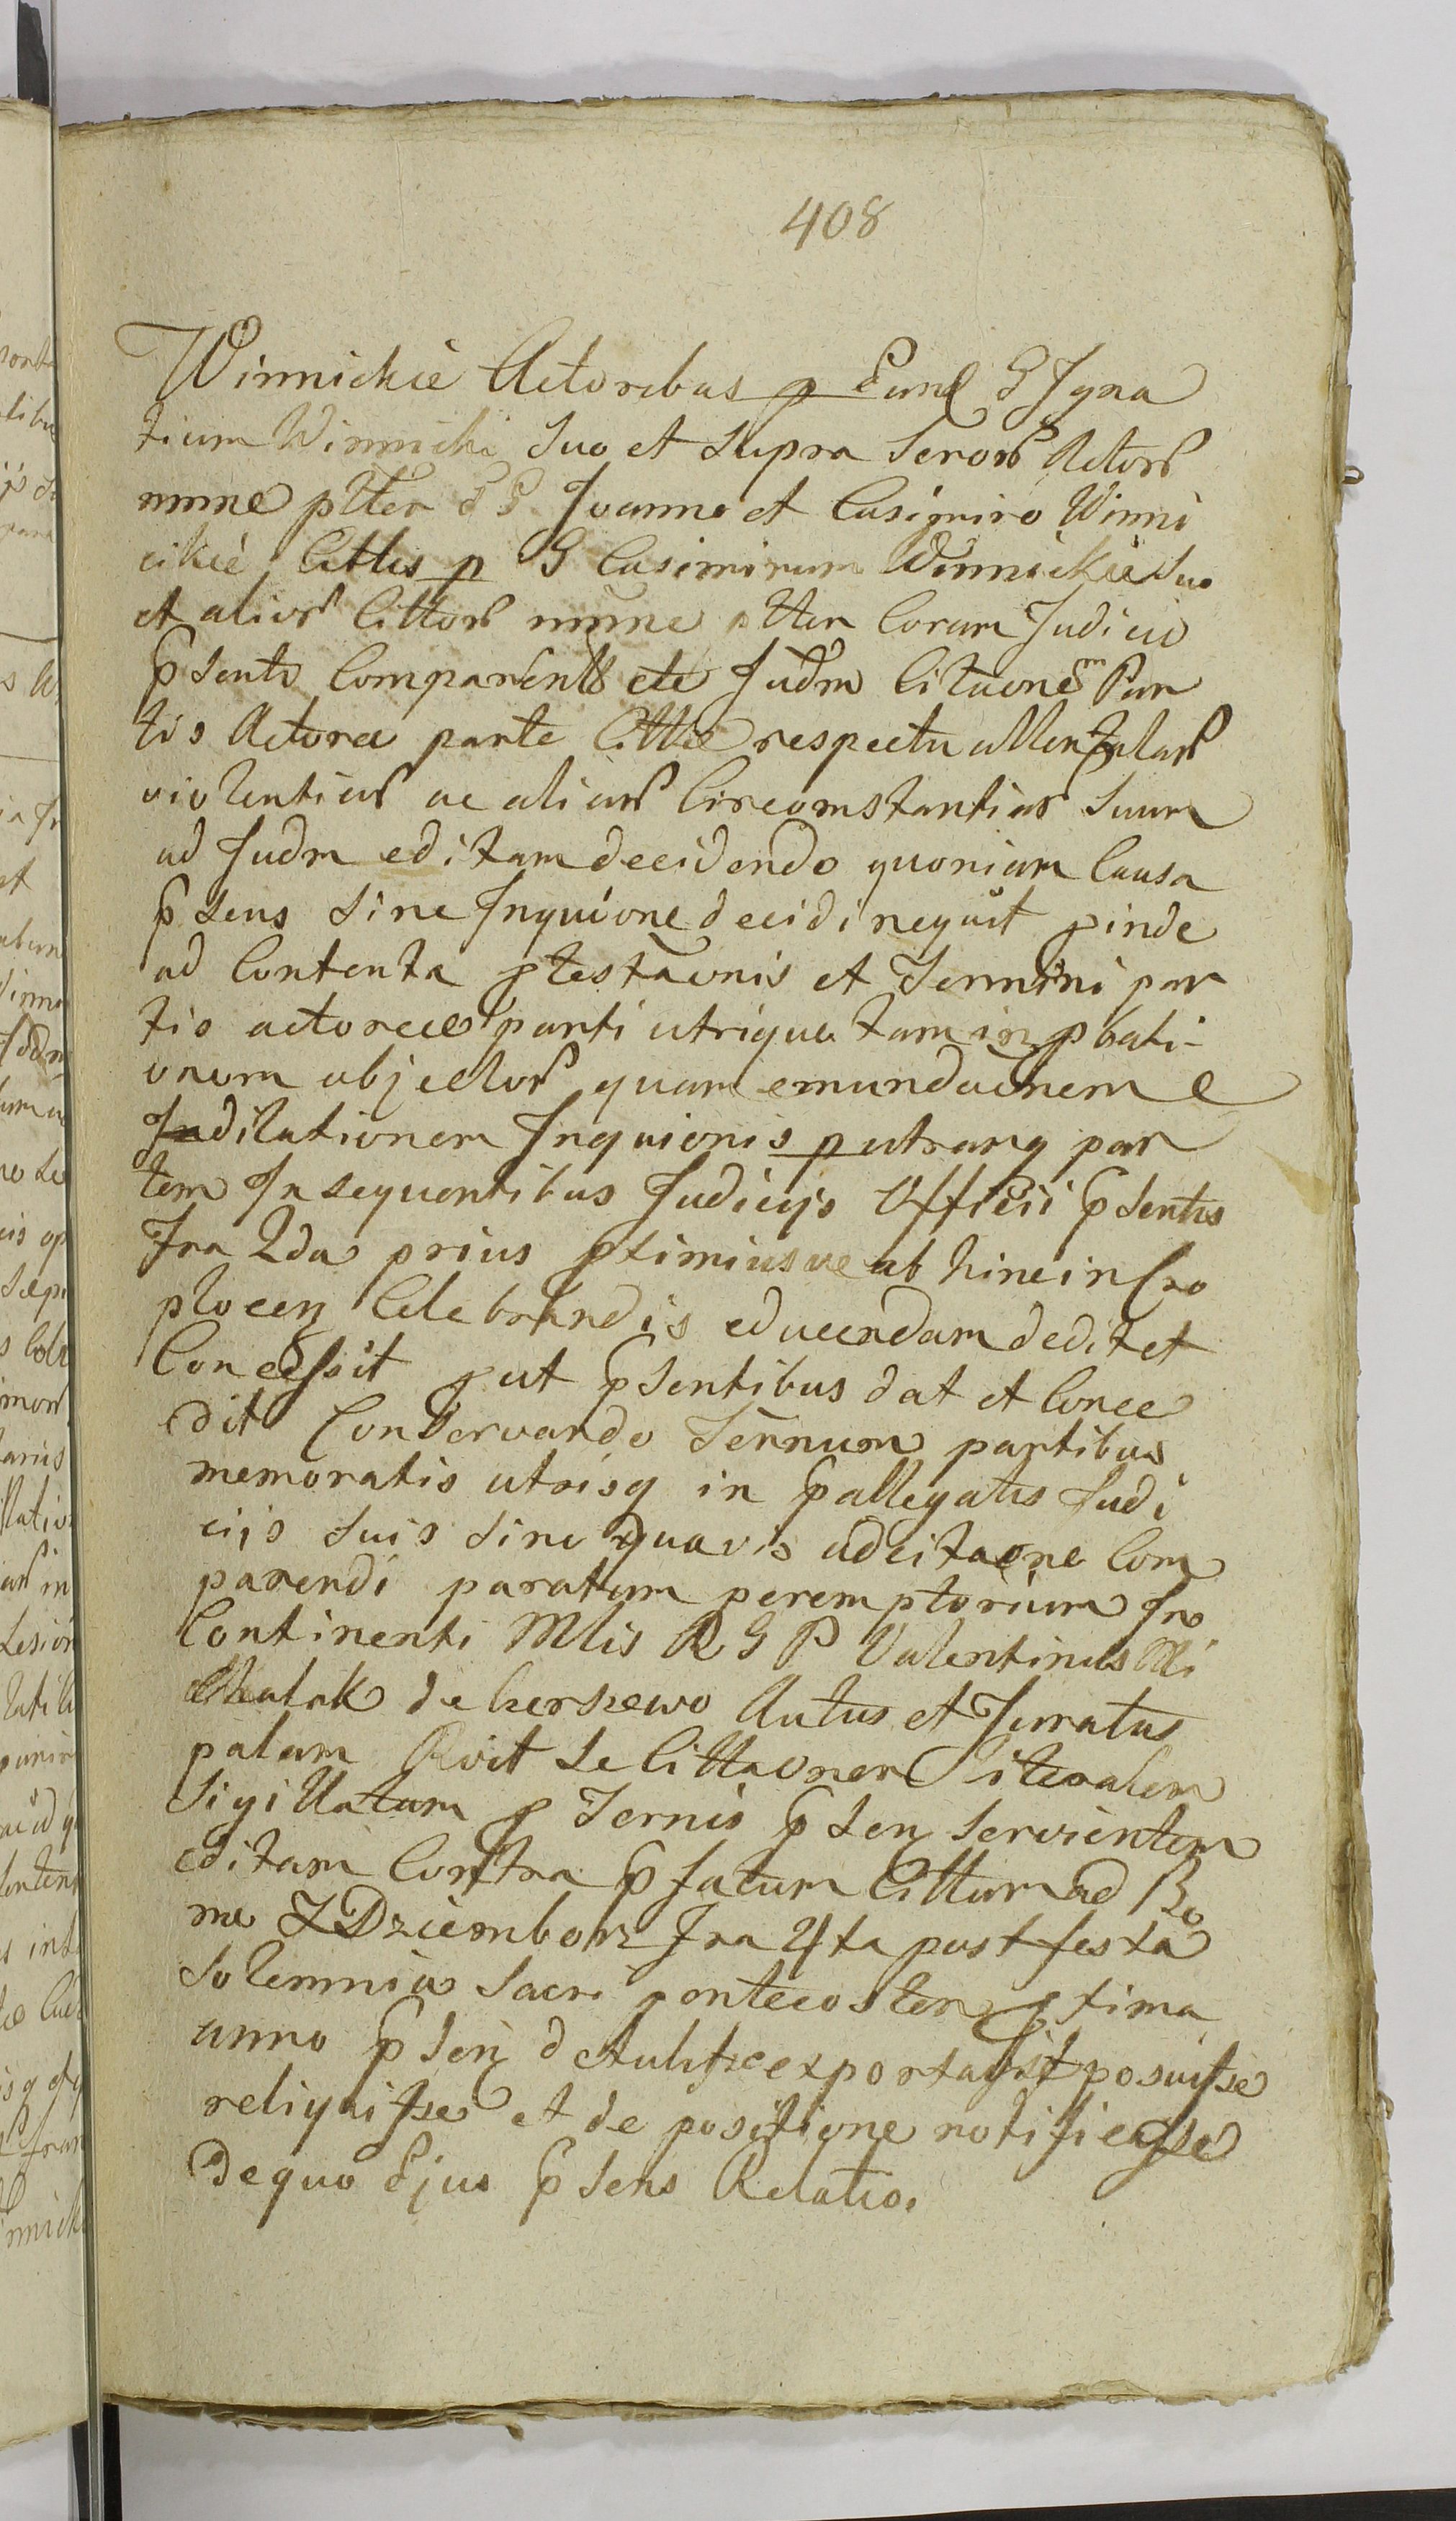 408
Winnickie Actoribus p Eund G Igna
tium Winnicki Suo et Supra Scror Actor
nmne ptter G G Joanne et Casimiro Winni
ckie Cittis p G Casimirum Winnickie Suo
et alior Cittor nmne ptter Coram Judicio
pSenti Comparentt ete Judm Citaonem Par
tis Actorea parte Citta respectu
violentiar ac aliar Circomstantiar Suam
ad Judm editam decidendo quoniam Causa
pSens Sine Inquione decidi nequit pinde
ad Contenta ptestaonis et Termini par
tis actoreae parti utrique tam in pbati-
onem objector quam emundaonem e
Indilationem Inquionis p utramq par
tem In Sequentibus Judicijs Officii pSentis
Fra 2da prius ptimius ve ab hinc in Cro
plocen Celebrandis educendam dedit et
Concessit put pSentibus dat et Conce
dit Conservando Ternum partibus
memoratis utrisq in pallegatis Judi
cijs Suis Sine quavis adcitaone Com
parendi paratum peremptorium Ino
Continenti Mlis R G P Valentinus Mi
chalak de Autus et Juratus
palam Rvit Se Cittaonem literalem
Sigillatam p Ternis pSen Servientem
editam Contra pfatum Cittum ad Bo
na Z Dziemborz Fra 4ta post festa
Solemnia Sacri pentecosten ptima
anno pSen d exportasse posuisse
reliquisse et de positione notificasse
De quo Ejus pSens Relatio.